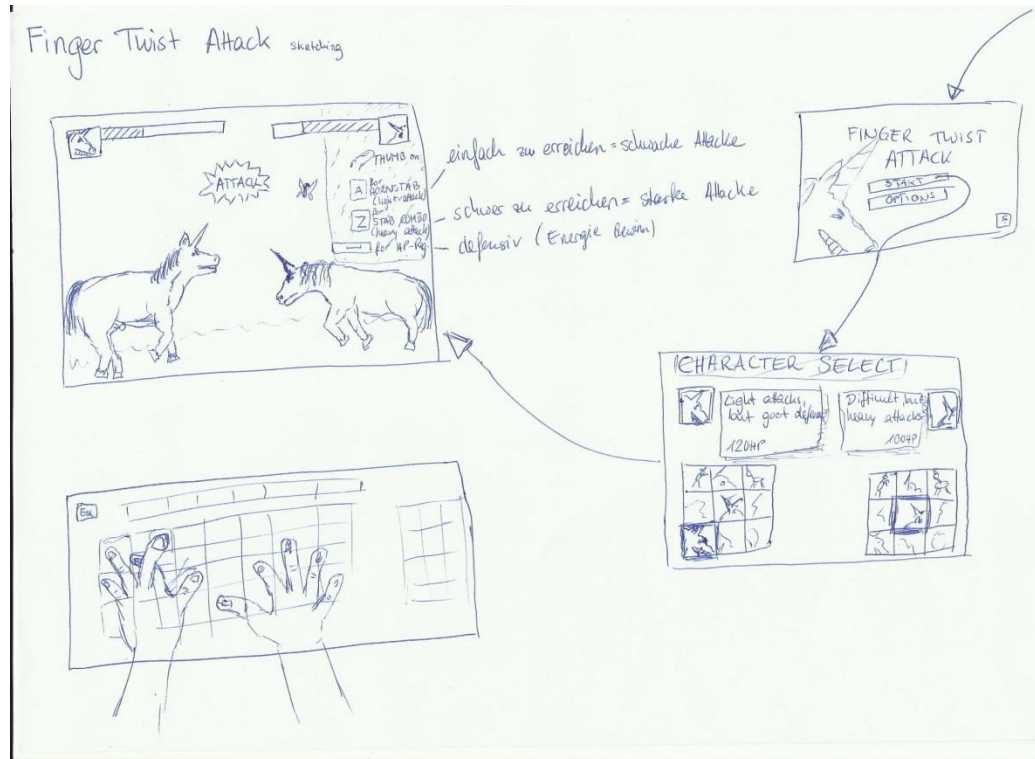 Finger Twist Attack sketching
ATTACK
THUMB on:
A for
HORNSTAB
(light attack)
Z for
STAB COMBO
(heavy attack)
for HP-Reg
einfach zu erreichen = schwache Attacke
schwer zu erreichen = starke Attacke
defensiv (Energie Gewinn)
FINGER TWIST
ATTACK
START
OPTIONS
CHARACTER SELECT
Light attacks,
but goot defense
120HP
Difficult, but
heavy attacks
100HP
Esc